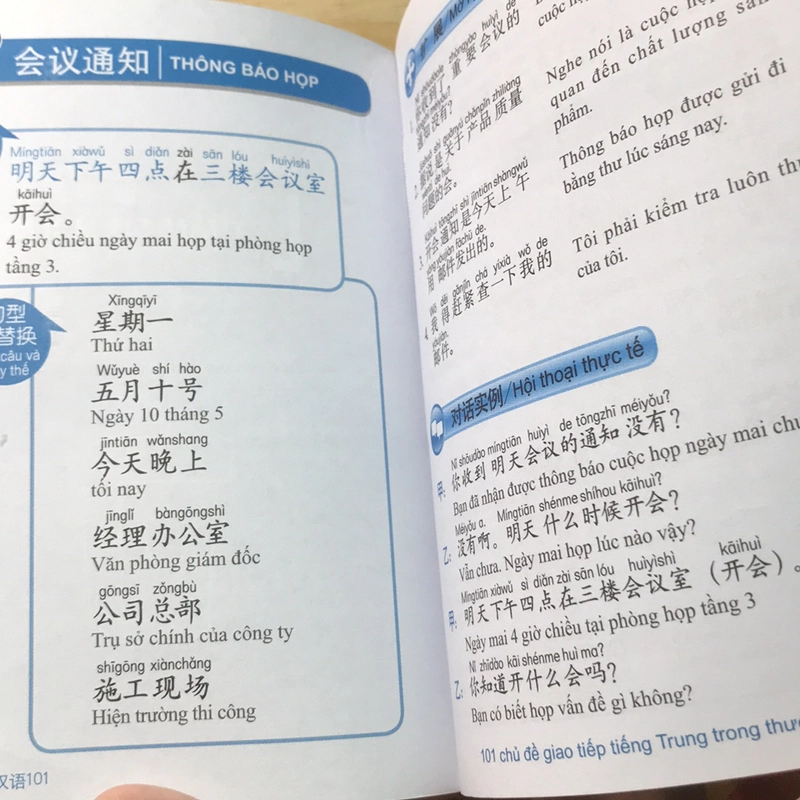 会议通知 | THÔNG BÁO HỌP
Míngtiān xiàwǔ sì diǎn zài sān lóu huìyìshì
明天下午四点在三楼会议室
kāihuì
开会。
4 giờ chiều ngày mai họp tại phòng họp
tầng 3.
句型
替换
câu và
Xīngqīyī
星期一
Thứ hai
Wǔyuè shí hào
五月十号
Ngày 10 tháng 5
jīntiān wǎnshang
今天晚上
tối nay
jīnglǐ bàngōngshì
经理办公室
Văn phòng giám đốc
gōngsī zǒngbù
公司总部
Trụ sở chính của công ty
shīgōng xiànchǎng
施工现场
Hiện trường thi công
汉语101
扩展/Mở
重要会议的
通知没有?
cuộc họp
2. 听说是关于产品质量
问题的会。
Nghe nói là cuộc họp
quan đến chất lượng sản
phẩm.
3. 开会通知是今天上午
用邮件发出的。
Thông báo họp được gửi đi
bằng thư lúc sáng nay.
Wǒ děi gǎnjǐn chá yíxià wǒ de
4. 我得赶紧查一下我的
yóujiàn.
邮件。
Tôi phải kiểm tra luôn
của tôi.
对话实例/Hội thoại thực tế
Nǐ shōudào míngtiān huìyì de tōngzhī méiyǒu?
甲: 你收到明天会议的通知没有?
Bạn đã nhận được thông báo cuộc họp ngày mai
Méiyǒu a. Míngtiān shénme shíhou kāihuì?
乙: 没有啊。明天什么时候开会?
Vẫn chưa. Ngày mai họp lúc nào vậy?
Míngtiān xiàwǔ sì diǎn zài sān lóu huìyìshì kāihuì
甲: 明天下午四点在三楼会议室(开会)。
Ngày mai 4 giờ chiều tại phòng họp tầng 3
Nǐ zhīdào kāi shénme huì ma?
乙: 你知道开什么会吗?
Bạn có biết họp vấn đề gì không?
101 chủ đề giao tiếp tiếng Trung trong